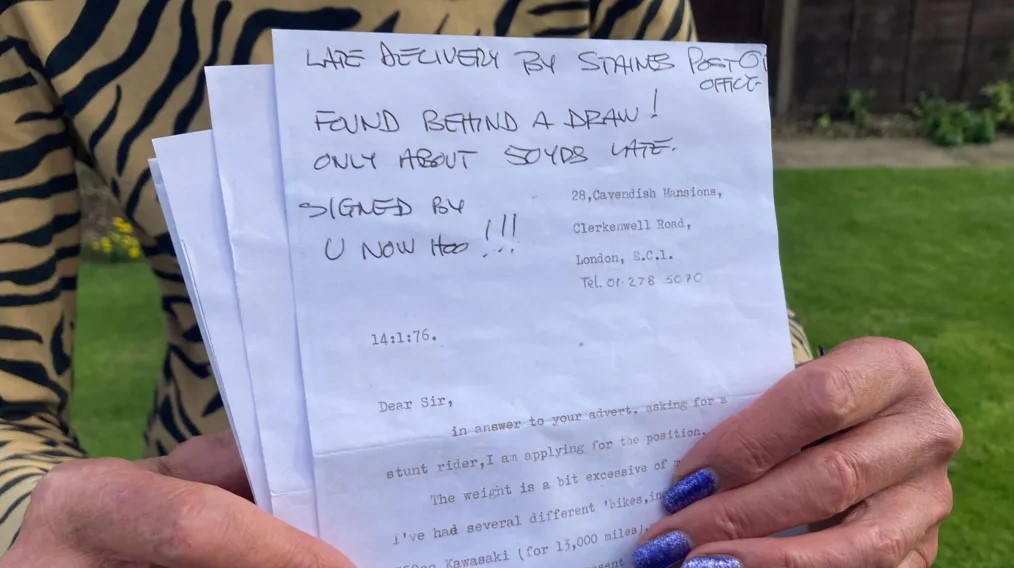 LATE DELIVERY BY STAINES POST
OFFICE
FOUND BEHIND A DRAW!
ONLY ABOUT 50YDS LATE.
SIGNED BY
U NOW HOO !!!
28,Cavendish Mansions,
Clerkenwell Road,
London, E.C.1.
Tel. 01-278 5070
14:1:76.
Dear Sir,
in answer to your advert. asking for a
stunt rider,I am applying for the position.
The weight is a bit excessive of
I've had several different 'bikes,in
Kawasaki (for 13,000 miles)